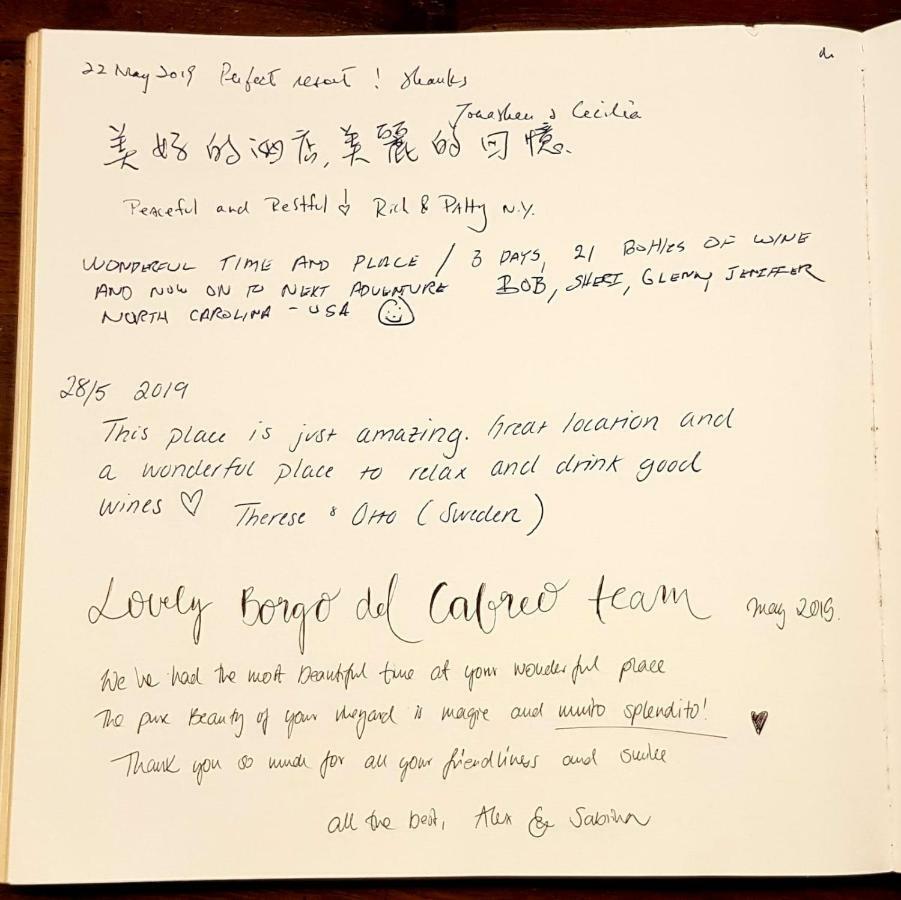 22 May 2019 Perfect resort ! thanks
Jonathen & Cecilia
美好的酒店, 美麗的回憶.
Peaceful and Restful Rich & Patty N.Y.
WONDERFUL TIME AND PLACE / 3 DAYS, 21 BOttles OF WINE
AND NOW ON TO NEXT ADVENTURE BOB, SHERI, GLENN, JENIFFER
NORTH CAROLINA - USA
28/5 2019
This place is just amazing. Great location and
a wonderful place to relax and drink good
wines ♡ Therese & Otto (Sweden)
Lovely Borgo del Cabreo team may 2019.
We've had the most beautiful time at your wonderful place
The pure Beauty of your vineyard is magic and muito splendito! ♥
Thank you so much for all your friendliness and smile
all the best, Alex & Sabina